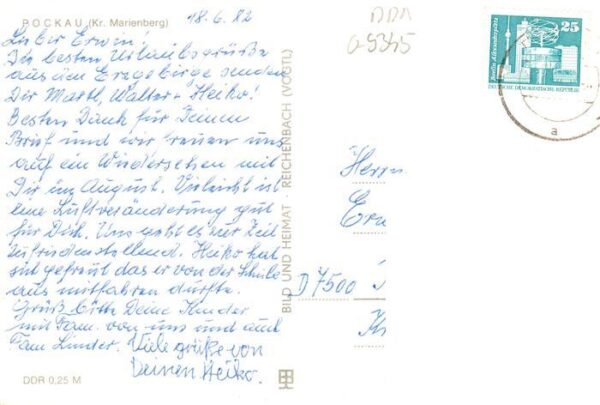 POCKAU (Kr. Marienberg)
18.6.82
Lieber Erwin!
Die besten Urlaubsgrüße
aus dem Erzgebirge senden
Dir Martl, Walter + Heiko!
Besten Dank für Deinen
Brief und wir freuen uns
auf ein Wiedersehen mit
Dir im August. Vielleicht ist
eine Luftveränderung gut
für Dich. Uns geht es zur Zeit
zufriedenstellend. Heiko hat
sich gefreut das er von der Schule
aus mitfahren durfte.
Grüß bitte Deine Kinder
mit Fam. von uns und auch
Fam. Linder. Viele grüße von
Deinen Heiko.
DDR 0,25 M
BILD UND HEIMAT · REICHENBACH (VOGTL)
DDR
25
Berlin, Alexanderplatz
DEUTSCHE DEMOKRATISCHE REPUBLIK
a
Herrn
D 7500